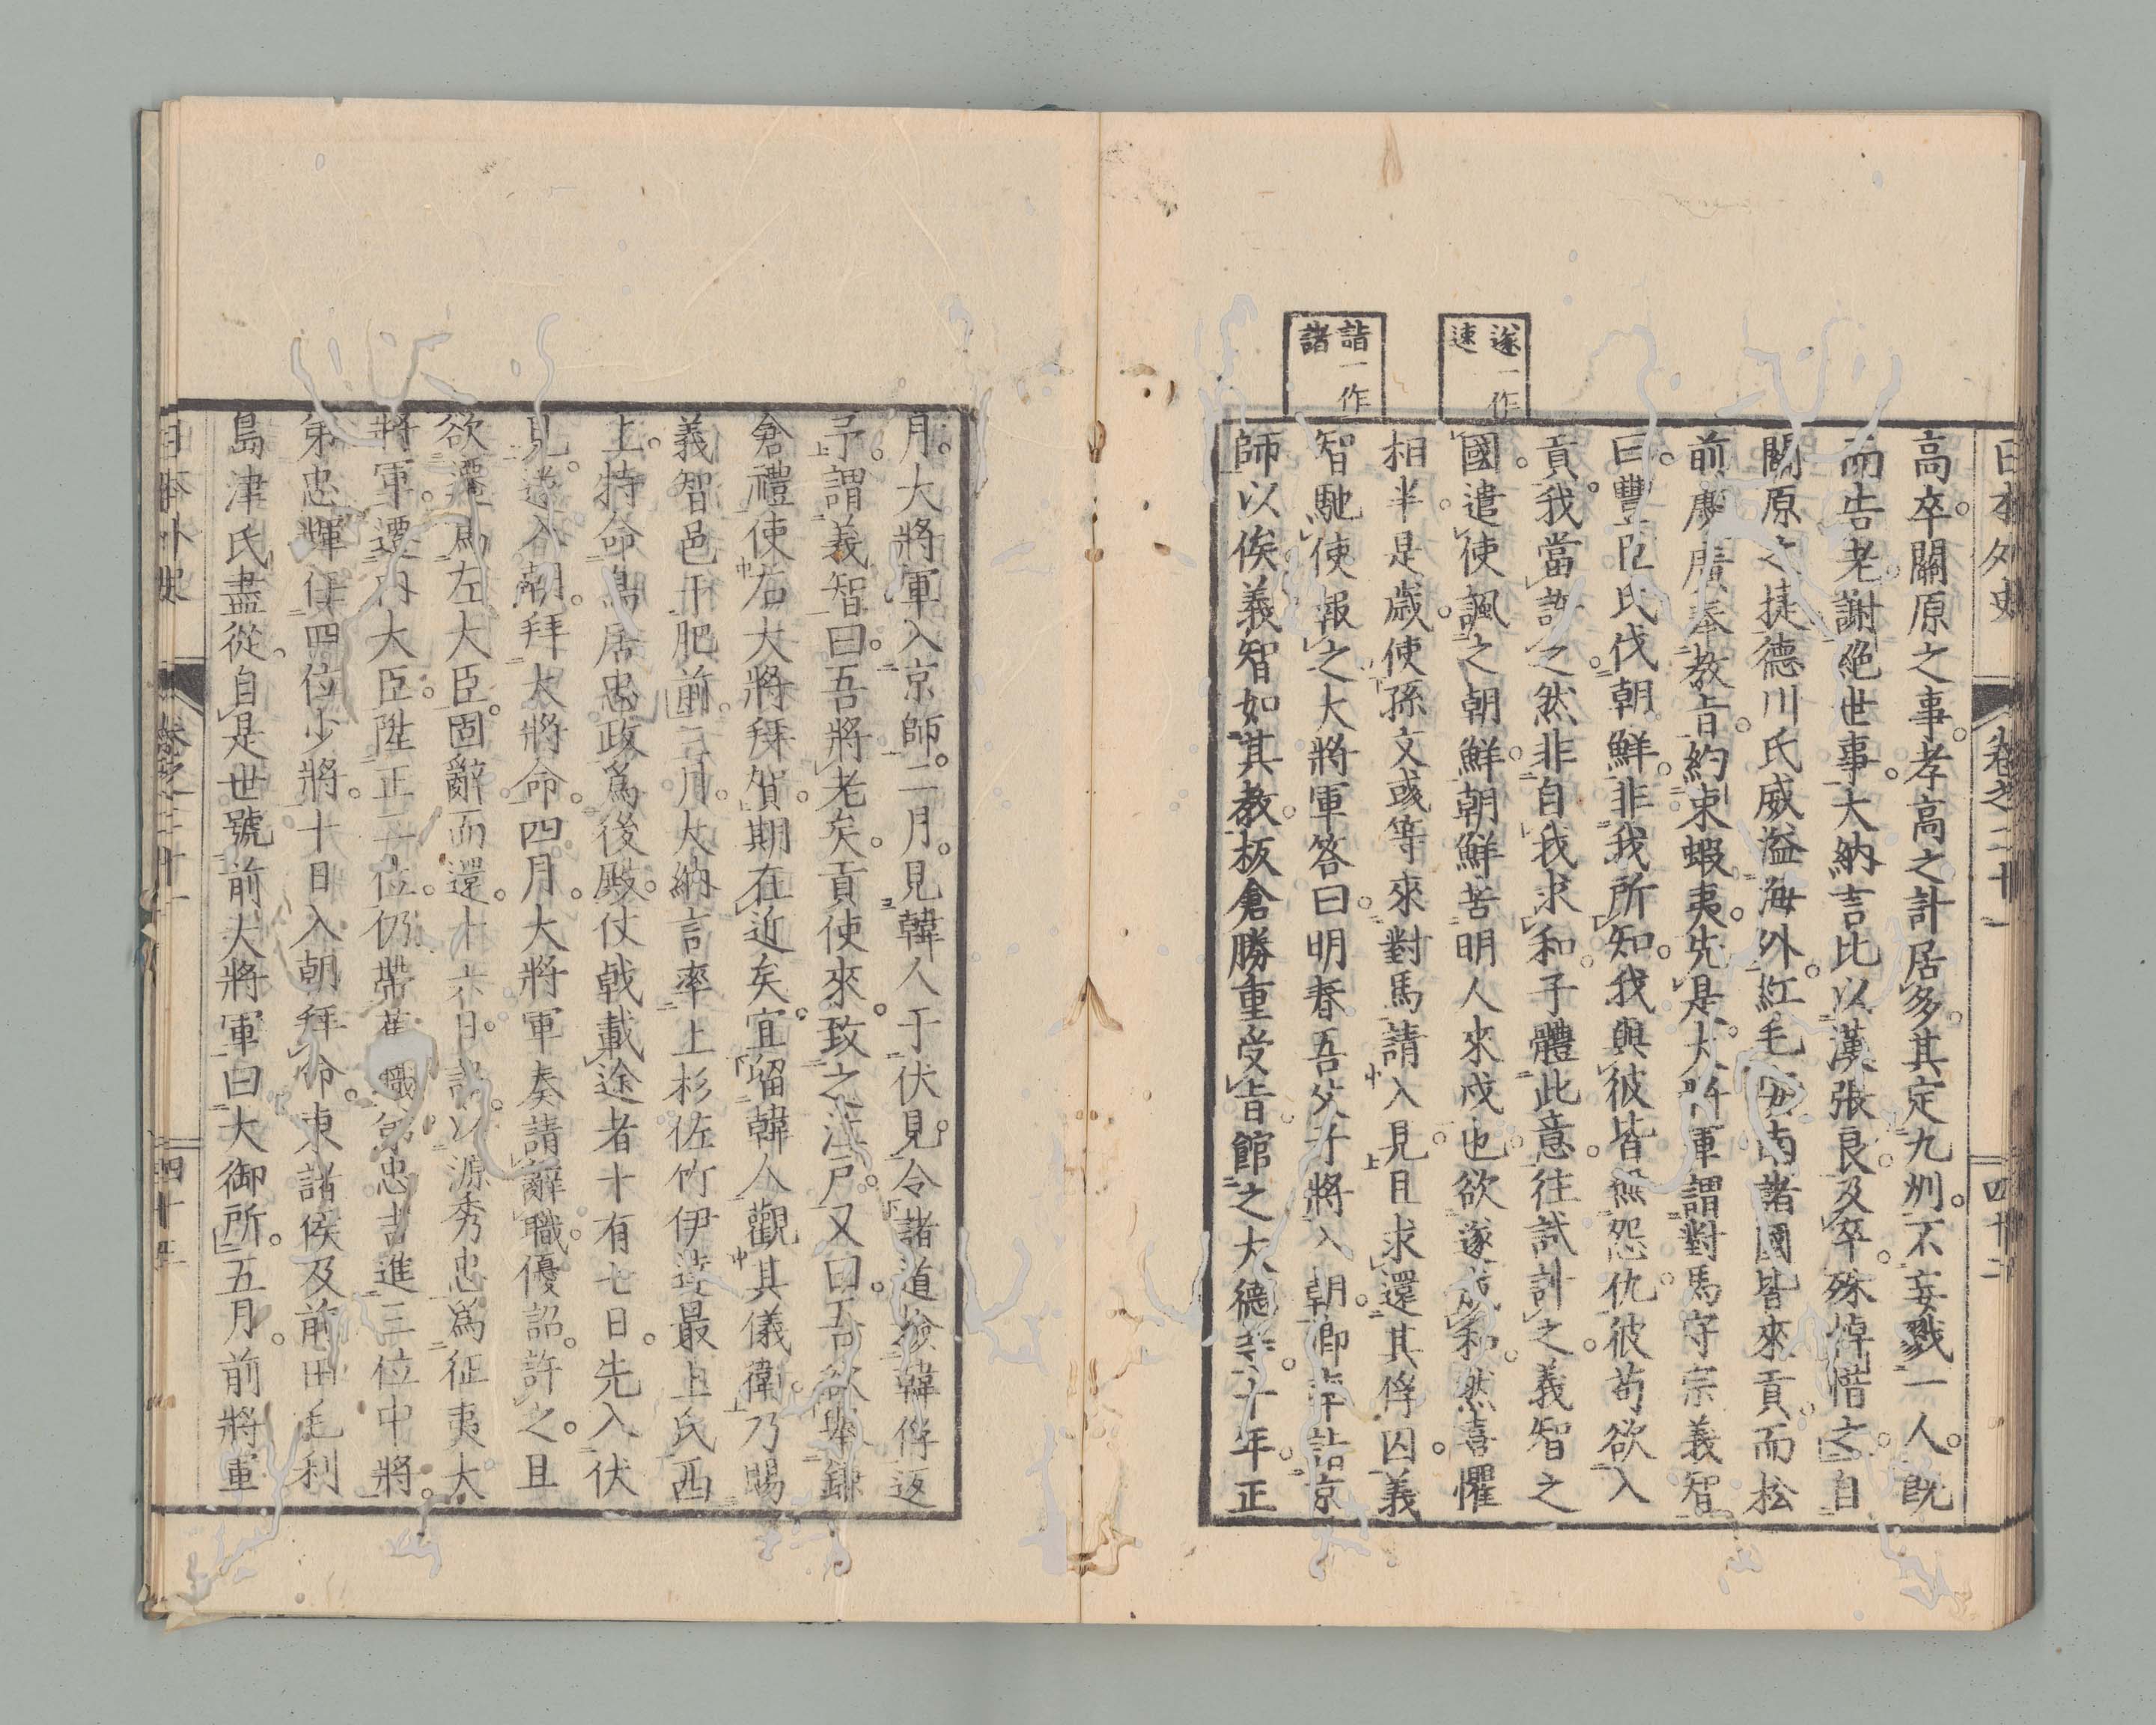 日本外史 卷之二十一 四十二
遂一作
速
詣一作
諸
高卒。關原之事。孝高之計居多。其定九州。不妄戮一人。既
而告老。謝絕世事。大納言比以漢張良。及卒。殊悼惜之。自
關原之捷德川氏威溢海外。紅毛安南諸國皆來貢。而松
前慶廣奉教旨。約束蝦夷。先是大將軍謂對馬守宗義智
曰。豐臣氏伐朝鮮。非我所知。我與彼皆無怨仇。彼苟欲入
貢。我當許之。然非自我求和。子體此意。往試計之。義智之
國。遣使諷之朝鮮。朝鮮苦明人來戍也。欲遂成和。然喜懼
相半。是歲。使孫文彧等來對馬。請入見。且求還其俘囚。義
智馳使報之大將軍。答曰。明春吾父子將入朝。卿詣京
師以俟。義智如其教。板倉勝重受旨館之大德寺。十年正
月。大將軍入京師。二月。見韓人于伏見。令諸道撿韓俘返
予。謂義智曰。吾將老矣。貢使來。致之江戶。又曰。吾欲舉鎌
倉禮。使右大將拜賀。期在近矣。宜留韓人觀其儀衛。乃賜
義智邑于肥前。三月。大納言率上杉佐竹伊達最上氏西
上。特命鳥居忠政爲後殿。仗戟載途者十有七日。先入伏
見。遂入朝。拜大將命。四月。大將軍奏請辭職。優詔。許之。且
欲遷爲左大臣。固辭而還。十六日。詔。以源秀忠爲征夷大
將軍。遷內大臣。陞正二位。仍帶舊職。弟忠吉進三位中將。
弟忠輝任四位少將。十日入朝拜命。東諸侯及前田毛利
島津氏盡從。自是世號前大將軍曰大御所。五月。前將軍
日本外史 卷之二十一 四十三